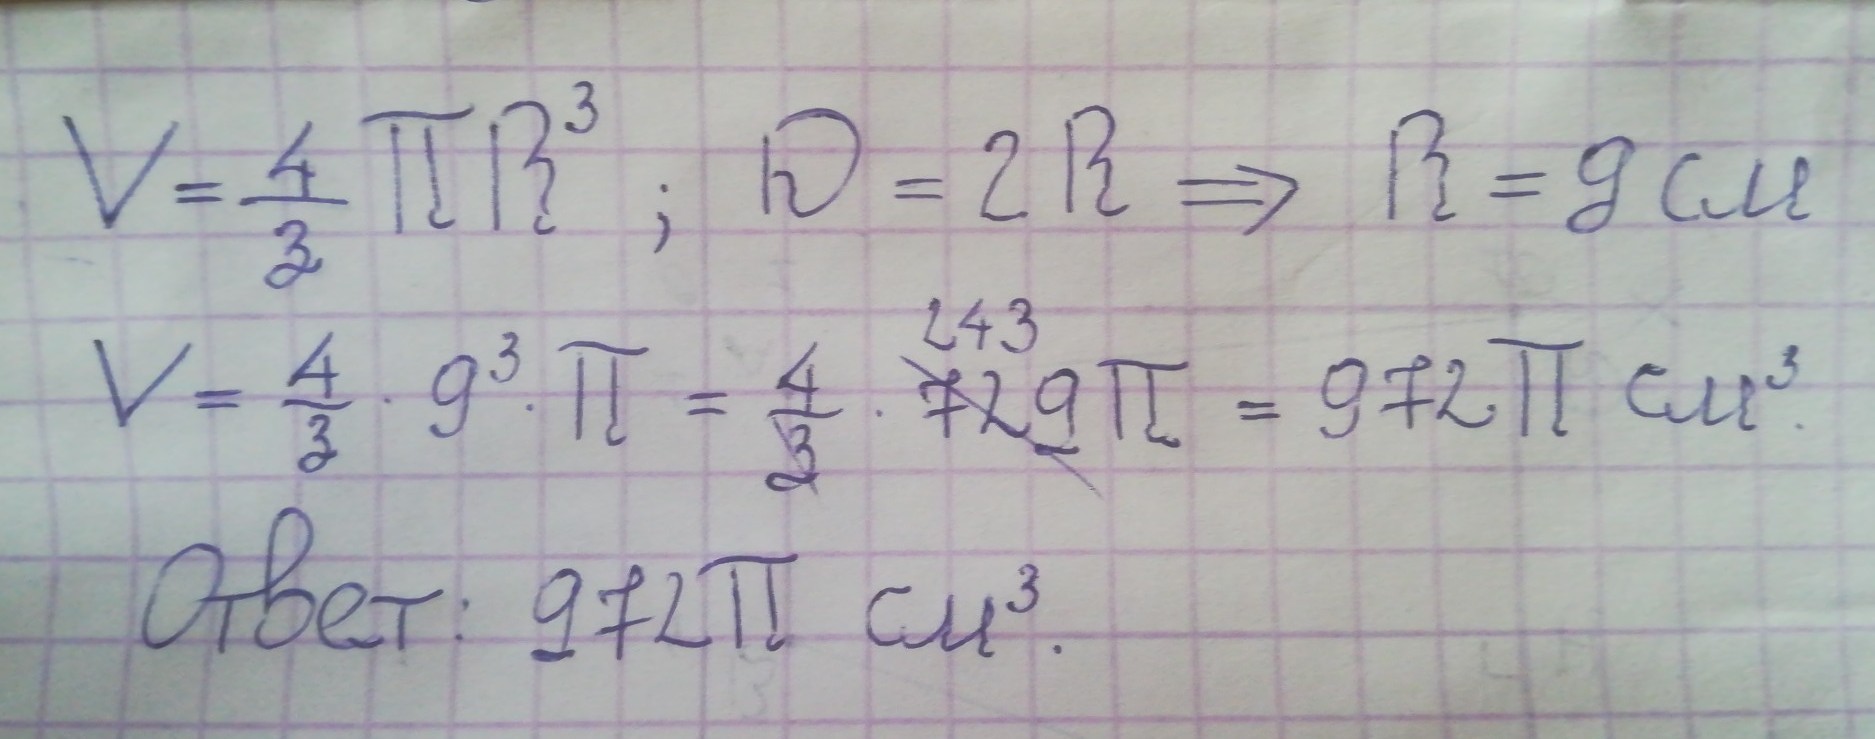 V = 4/3 πR³ ; D = 2R ⇒ R = 9 см
V = 4/3 · 9³ · π = 4/3 · 729π = 972π см³.
243
Ответ: 972π см³.